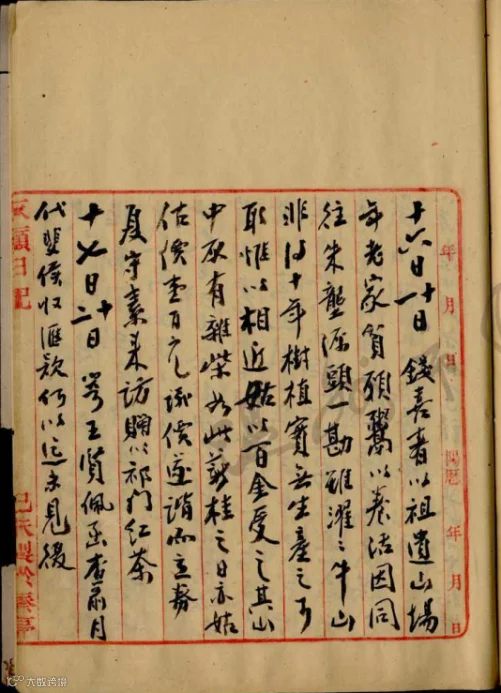 年 月 日 陽曆 年 月 日
十六日十一日 錢喜書以祖遺山場
年老家貧願鬻以養活因同
往朱壟漏頭一勘雖濯〻牛山
非得十年樹植實無生產之可
取惟以相近姑以百金受之其山
中原有雜柴於此薪桂之日亦姑
估價壹百元 價並諧 立券
夏守素來訪贈以祁門紅茶
十七日十二日 寄王賢佩函查前月
代斐侯收滙款何以迄未見後
日記 己未製於 亭